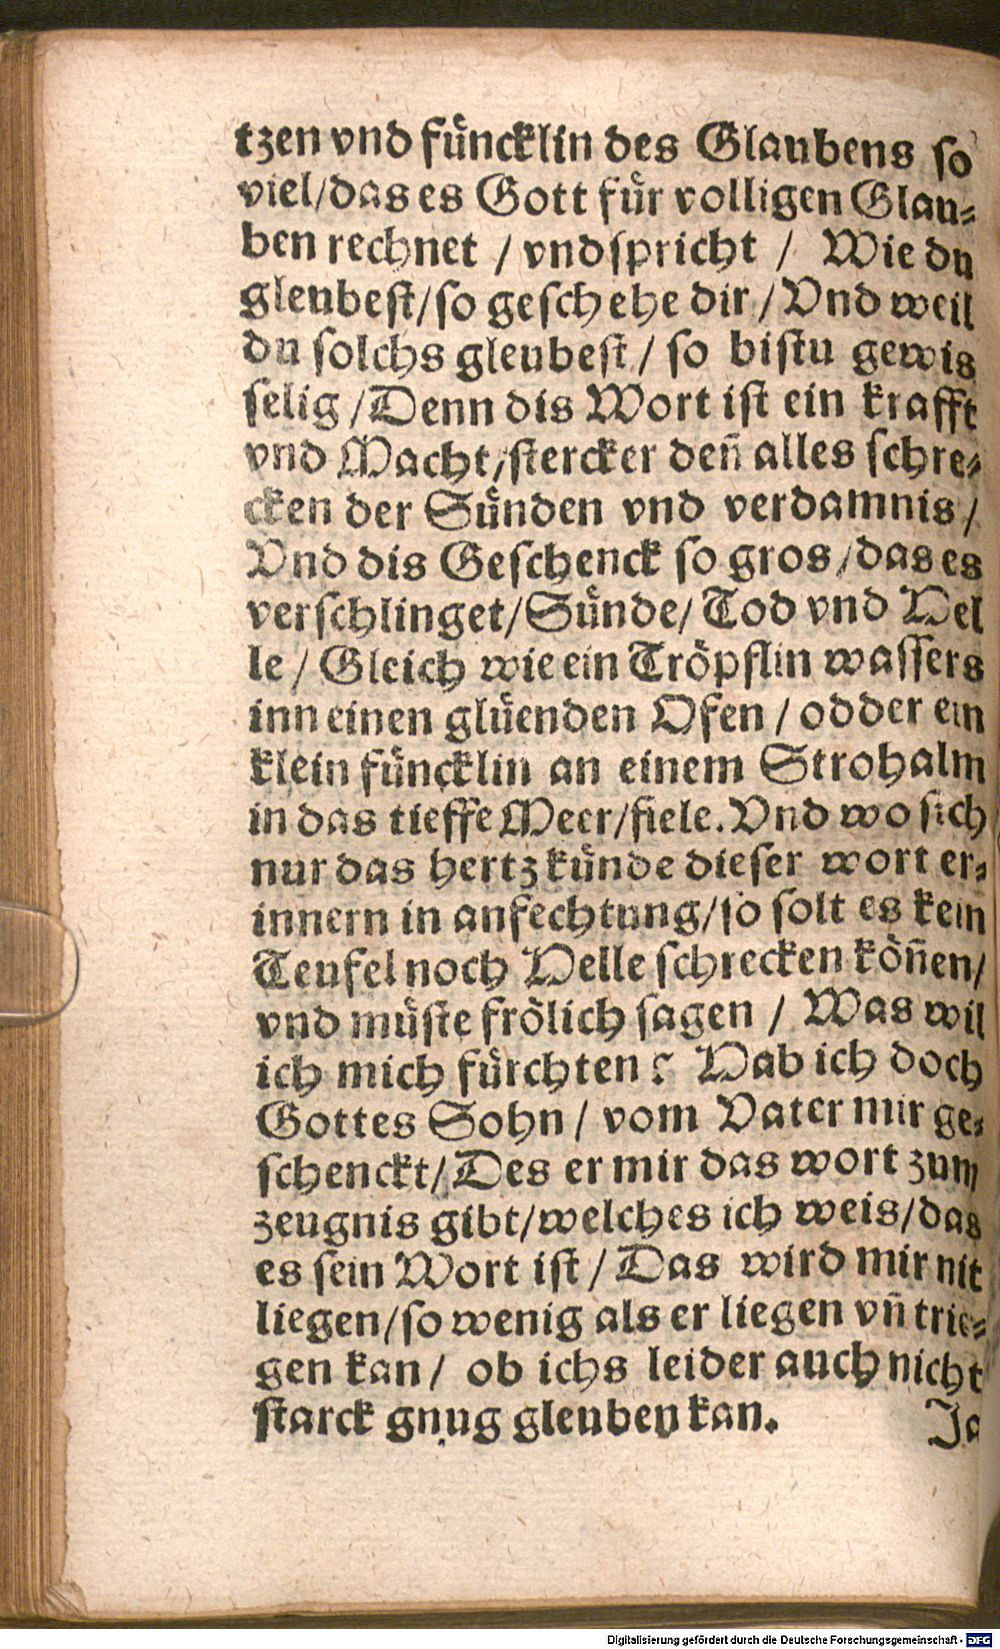 tzen vnd füncklin des Glaubens so
viel/das es Gott für volligen Glau-
ben rechnet / vnd spricht / Wie du
gleubest/so geschehe dir / Vnd weil
du solchs gleubest / so bistu gewis
selig /Denn dis Wort ist ein krafft
vnd Macht/stercker deñ alles schre-
cken der Sünden vnd verdamnis /
Vnd dis Geschenck so gros /das es
verschlinget/Sünde/ Tod vnd Hel
le / Gleich wie ein Tröpflin wassers
inn einen glüenden Ofen / odder ein
klein füncklin an einem Strohalm
in das tieffe Meer/fiele. Vnd wo sich
nur das hertz künde dieser wort er-
innern in anfechtung/so solt es kein
Teufel noch Helle schrecken köñen/
vnd müste frölich sagen / Was wil
ich mich fürchten? Hab ich doch
Gottes Sohn / vom Vater mir ge-
schenckt/Des er mir das wort zum
zeugnis gibt/welches ich weis/das
es sein Wort ist / Das wird mir nit
liegen/so wenig als er liegen vñ trie-
gen kan / ob ichs leider auch nicht
starck gnug gleuben kan. Ja
Digitalisierung gefördert durch die Deutsche Forschungsgemeinschaft - DFG